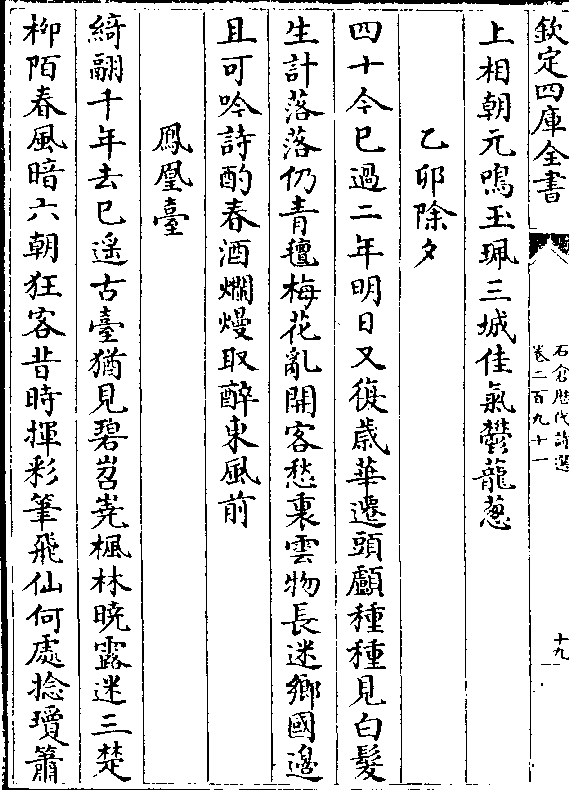 欽定四庫全書
石倉歷代詩選
卷二百九十一
十九
上相朝元鳴玉珮三城佳氣鬱蘢葱
乙卯除夕
四十今已過二年明日又復歲華遷頭顱種種見白髮
生計落落仍青氊梅花亂開客愁裏雲物長迷鄉國邉
且可吟詩酌春酒爛熳取醉東風前
鳳凰臺
綺翮千年去已遥古臺猶見碧岧嶤楓林曉露迷三楚
柳陌春風暗六朝狂客昔時揮彩筆飛仙何處捻瓊簫